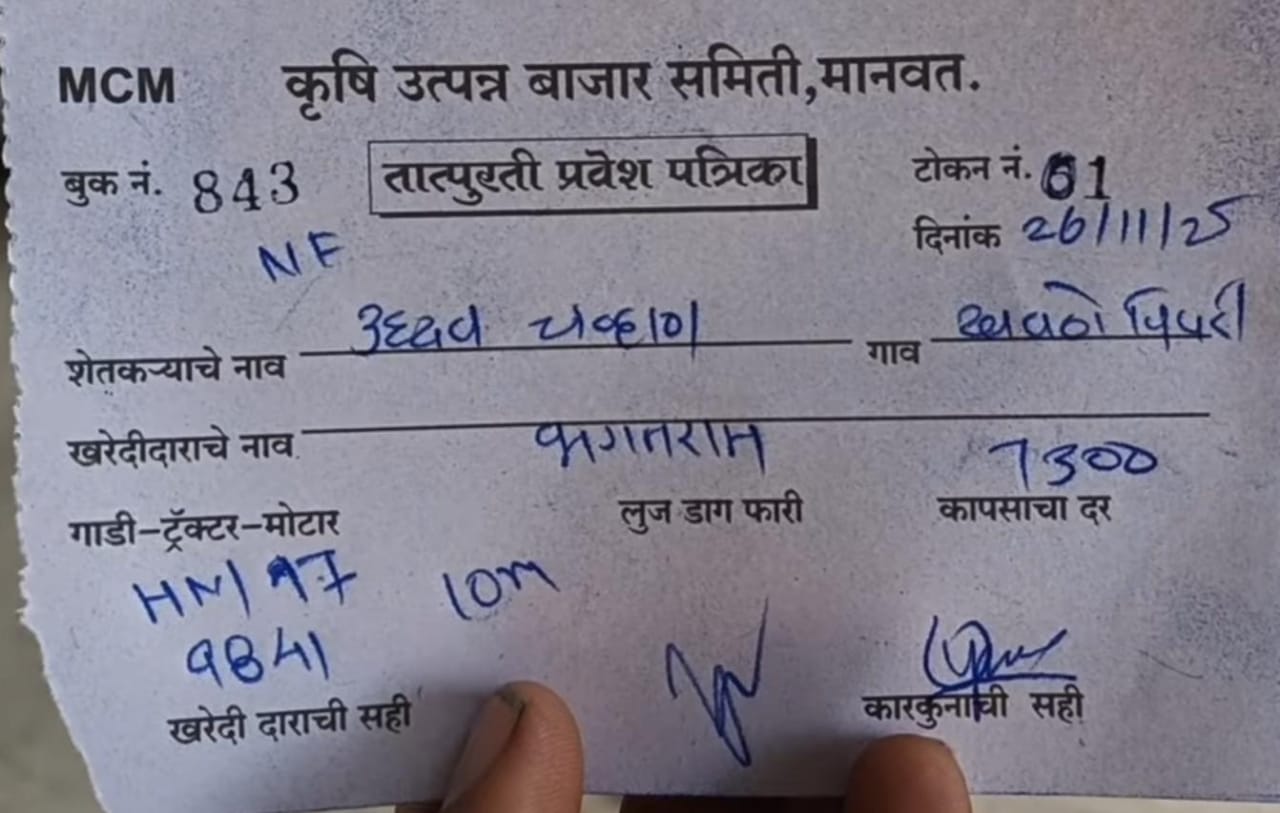 MCM कृषि उत्पन्न बाजार समिती,मानवत.
बुक नं. 843 तात्पुरती प्रवेश पत्रिका टोकन नं. 61
NF दिनांक 26/11/25
शेतकऱ्याचे नाव उद्धव चव्हाण गाव पिंपरी
खरेदीदाराचे नाव भगतराम 7300
गाडी-ट्रॅक्टर-मोटार लुज डाग फारी कापसाचा दर
10m
9841
खरेदी दाराची सही कारकुनाची सही